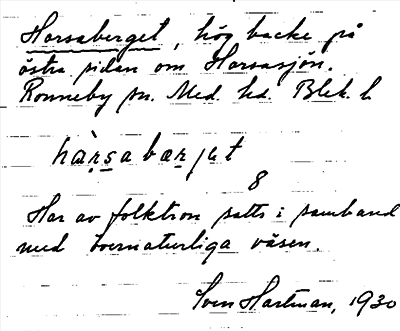 Horsaberget, hög backe på
östra sidan om Horsasjön.
Ronneby sn. Med. hd. Blek. l.
hàr̥s̥abær̥jet
8
Har av folktron satts i samband
med övernaturliga väsen.
Sven Hartman, 1930